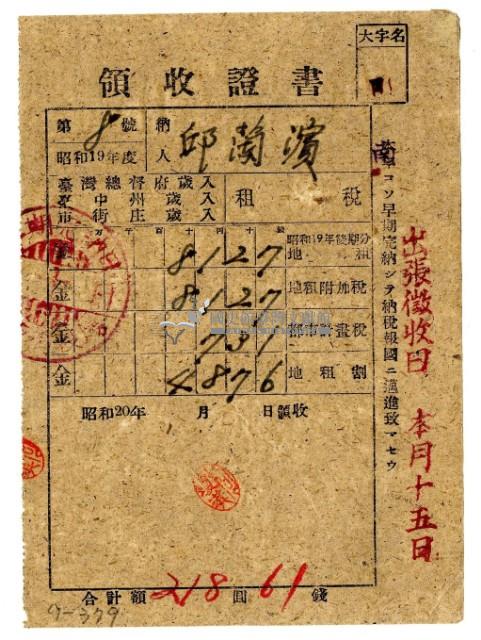 大字名
領收證書
第8號
昭和19年度
納人 邱蘭濱
臺灣總督府歲入
臺中州歲入
市街庄歲入
租稅
昭和19年後期分
地租
金 8127
地租附加稅
金 8127
金 731
地租割
金 4876
昭和20年 月 日領收
合計額 218圓61錢
コソ早期完納シテ納稅報國ニ邁進致マセウ
出張徵收日 本月十五日
7-379